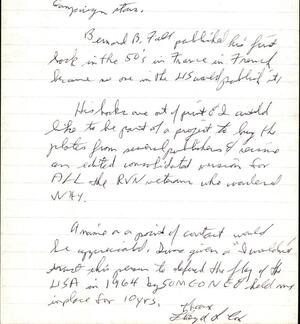 Campaign stars.
Bernard B. Fall published his first
book in the 50's in France in French
because no one in the US would publish it.
His books are out of print & I would
like to be part of a project to buy the
plates from several publishers & reissue
an edited consolidated version for
ALL the RVN veterans who wondered
WHY.
A name or a point of contact would
be appreciated. I was given a "I wouldn't
trust this person to defend the flag of the
USA in 1964 by SOMEONE & held my
in place for 10 yrs.
Thanx
Floyd L Cox